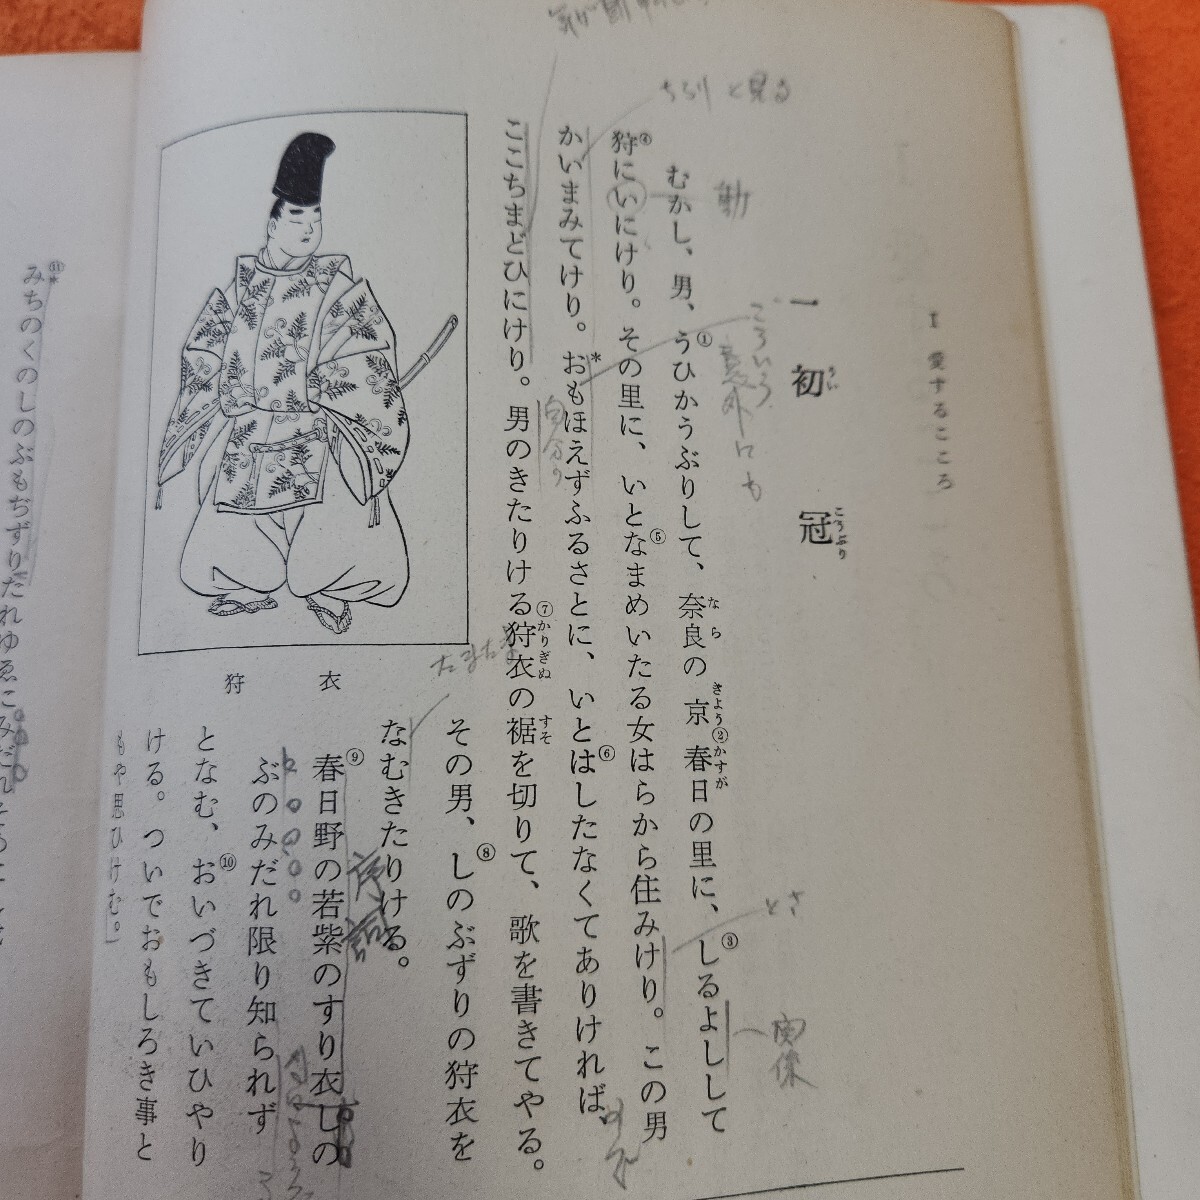 I 愛するこころ
一 初冠
ういこうぶり
むかし、男、①うひかうぶりして、奈良の京②春日の里に、③しるよしして
なら きよう かすが
狩④にいにけり。その里に、いと⑤なまめいたる女はらから住みけり。この男
かいまみてけり。*おもほえずふるさとに、いと⑥はしたなくてありければ、
ここちまどひにけり。男のきたりける⑦狩衣の裾を切りて、歌を書きてやる。
かりぎぬ すそ
その男、⑧しのぶずりの狩衣を
なむきたりける。
⑨春日野の若紫のすり衣しの
ぶのみだれ限り知られず
となむ、⑩おいづきていひやり
ける。ついでおもしろき事と
もや思ひけむ。
狩衣
⑪*みちのくのしのぶもぢずりたれゆゑにみだれそ
ちらりと見る
動
意外にも
自分の
たまたま
序詞
とさ
関係